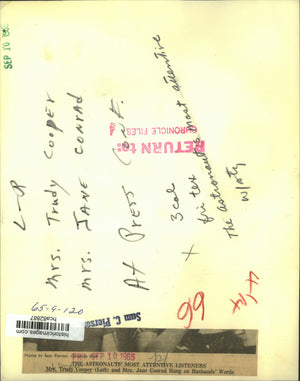 SEP 10 1965
L-R
Mrs. Trudy Cooper
Mrs. JANE CONRAD
At Press Conf.
RETURN to:
CHRONICLE FILES
3 col
fri tex
+ astronauts most attentive
The astros
w/Aty
66
65-9-120
Sam C. Pierson
historicimages.com
hca82887
SEP 10 1965
THE ASTRONAUTS' MOST ATTENTIVE LISTENERS
Mrs. Trudy Cooper (Left) and Mrs. Jane Conrad Hang on Husbands' Words